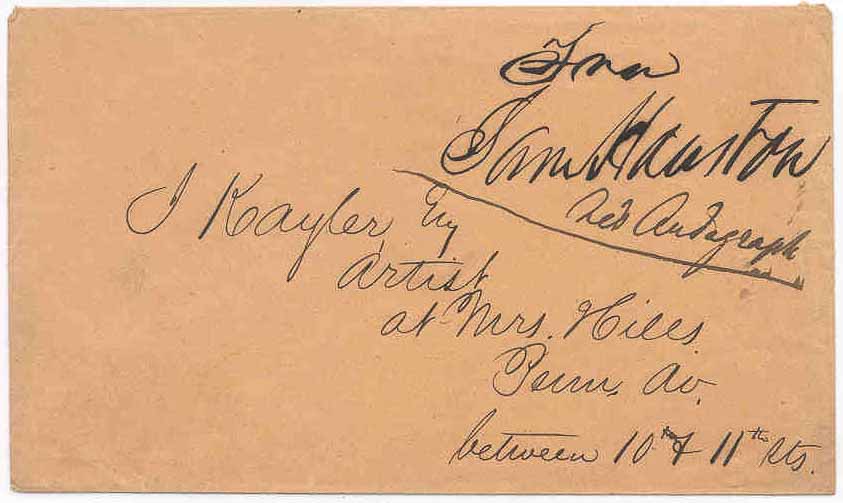 From
Sam Houston
his Autograph
J Kayler, Esq
Artist
at Mrs. Hills.
Penn, Av.
between 10th & 11th Sts.